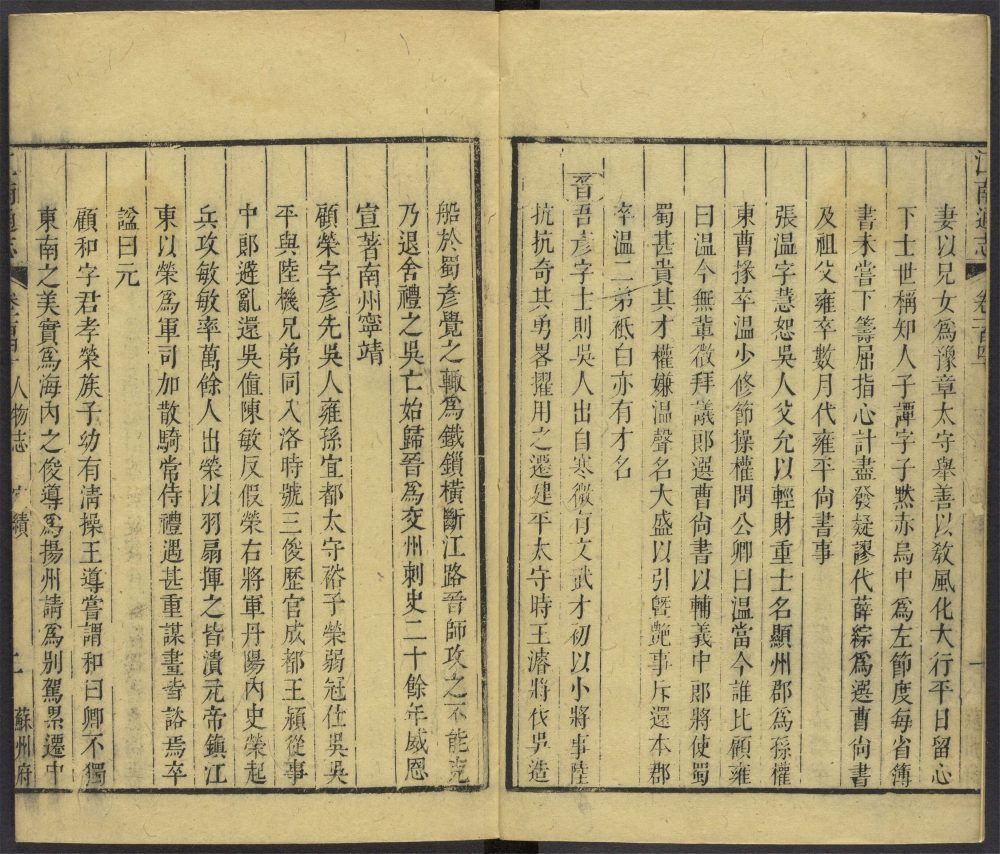 江南通志 卷一百四十
妻以兄女為豫章太守舉善以敎風化大行平日留心
下士世稱知人子譚字子黙赤烏中為左節度每省簿
書未嘗下籌屈指心計盡發疑謬代薛綜為選曹尚書
及祖父雍卒數月代雍平尚書事
張温字蕙恕吳人父允以輕財重士名顯州郡為孫權
東曹掾卒温少修節操權問公卿曰温當今誰比顧雍
曰温今無輩徵拜議郎選曹尚書以輔義中郎將使蜀
蜀甚貴其才權嫌温聲名大盛以引曁艷事斥還本郡
卒温二弟祗白亦有才名
晉吾彥字士則吳人出自寒微有文武才初以小將事陸
抗抗奇其勇畧擢用之遷建平太守時王濬將伐吳造
船於蜀彥覺之輙為鐵鎖橫斷江路晉師攻之不能克
乃退舍禮之吳亡始歸晉為交州刺史二十餘年威恩
宣著南州寧靖
顧榮字彥先吳人雍孫宜都太守裕子榮弱冠仕吳吳
平與陸機兄弟同入洛時號三俊歷官成都王頴從事
中郎避亂還吳值陳敏反假榮右將軍丹陽內史榮起
兵攻敏敏率萬餘人出榮以羽扇揮之皆潰元帝鎮江
東以榮為軍司加散騎常侍禮遇甚重謀畫皆諮焉卒
諡曰元
顧和字君孝榮族子幼有淸操王導嘗謂和曰卿不獨
東南之美實為海內之俊導為揚州請為別駕累遷中
南通志 卷一百四十 人物志 績 二 蘇州府